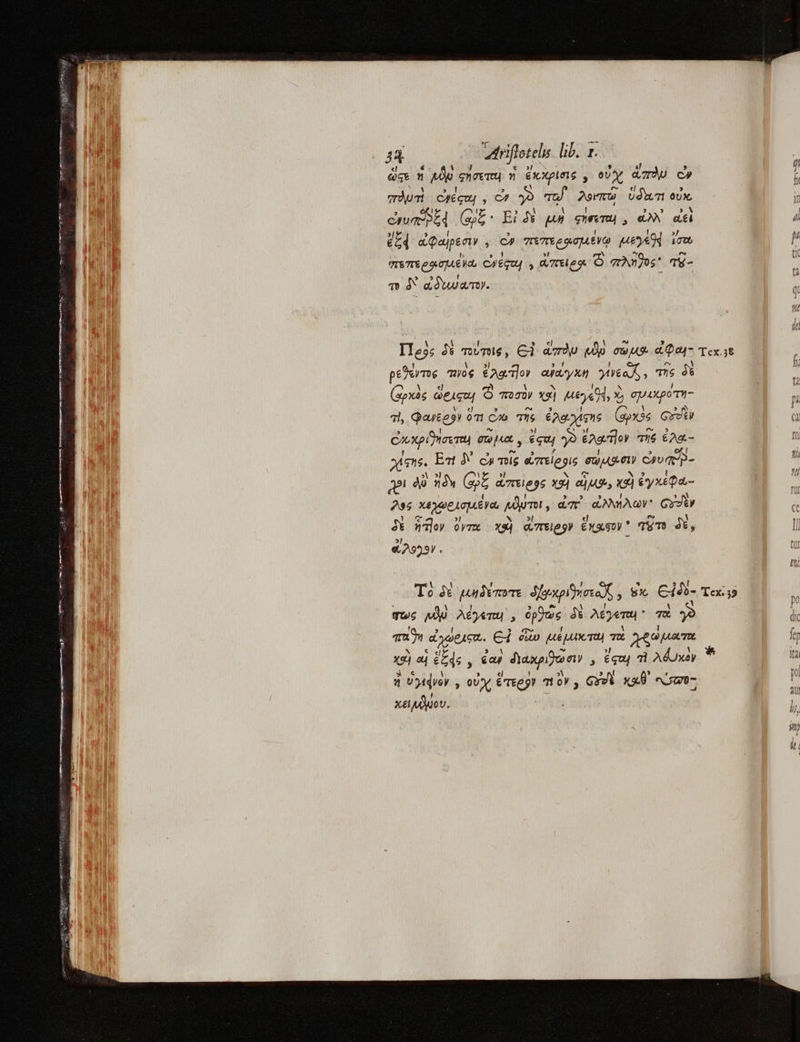 34 Aristotelis lib. 1.
ὥστε ἢ μὲν στήσεται ἡ ἔκκρισις, οὐχ ἅπαν ἐν
παντὶ ἐνέσται, ἐν γὰρ τῷ λοιπῷ ὕδατι οὐκ
ἐνυπάρξει σάρξ· Εἰ δὲ μὴ στήσεται, ἀλλ' ἀεὶ
ἕξει ἀφαίρεσιν, ἐν πεπερασμένῳ μεγέθει ἴσα
πεπερασμένα ἐνέσται, ἄπειρα τὸ πλῆθος· τοῦ-
το δ' ἀδύνατον.
Πρὸς δὲ τούτοις, εἰ ἅπαν μὲν σῶμα ἀφαι- Tex.38
ρεθέντος τινὸς ἔλαττον ἀνάγκη γίνεσθαι, τῆς δὲ
σαρκὸς ὥρισται τὸ ποσὸν καὶ μεγέθει, καὶ σμικρότη-
τι, φανερὸν ὅτι ἐκ τῆς ἐλαχίστης σαρκὸς οὐδὲν
ἐκκριθήσεται σῶμα, ἔσται γὰρ ἔλαττον τῆς ἐλα-
χίστης. Ἔτι δ' ἐν τοῖς ἀπείροις σώμασιν ἐνυπάρ-
χοι ἂν ἤδη σὰρξ ἄπειρος καὶ αἷμα, καὶ ἐγκέφα-
λος κεχωρισμένα μέντοι, ἀπ' ἀλλήλων· οὐδὲν
δὲ ἧττον ὄντα καὶ ἄπειρον ἕκαστον· τοῦτο δὲ,
ἄλογον.
Τὸ δὲ μηδέποτε διακριθήσεσθαι, οὐκ εἰδό- Tex.39
τως μὲν λέγεται, ὀρθῶς δὲ λέγεται· τὰ γὰρ
πάθη ἀχώριστα. εἰ οὖν μέμικται τὰ χρώματα
καὶ αἱ ἕξεις, ἐὰν διακριθῶσιν, ἔσται τὶ λευκὸν *
ἢ ὑγιεινὸν, οὐχ ἕτερόν τι ὂν, οὐδὲ καθ' ὑπο-
κειμένου.